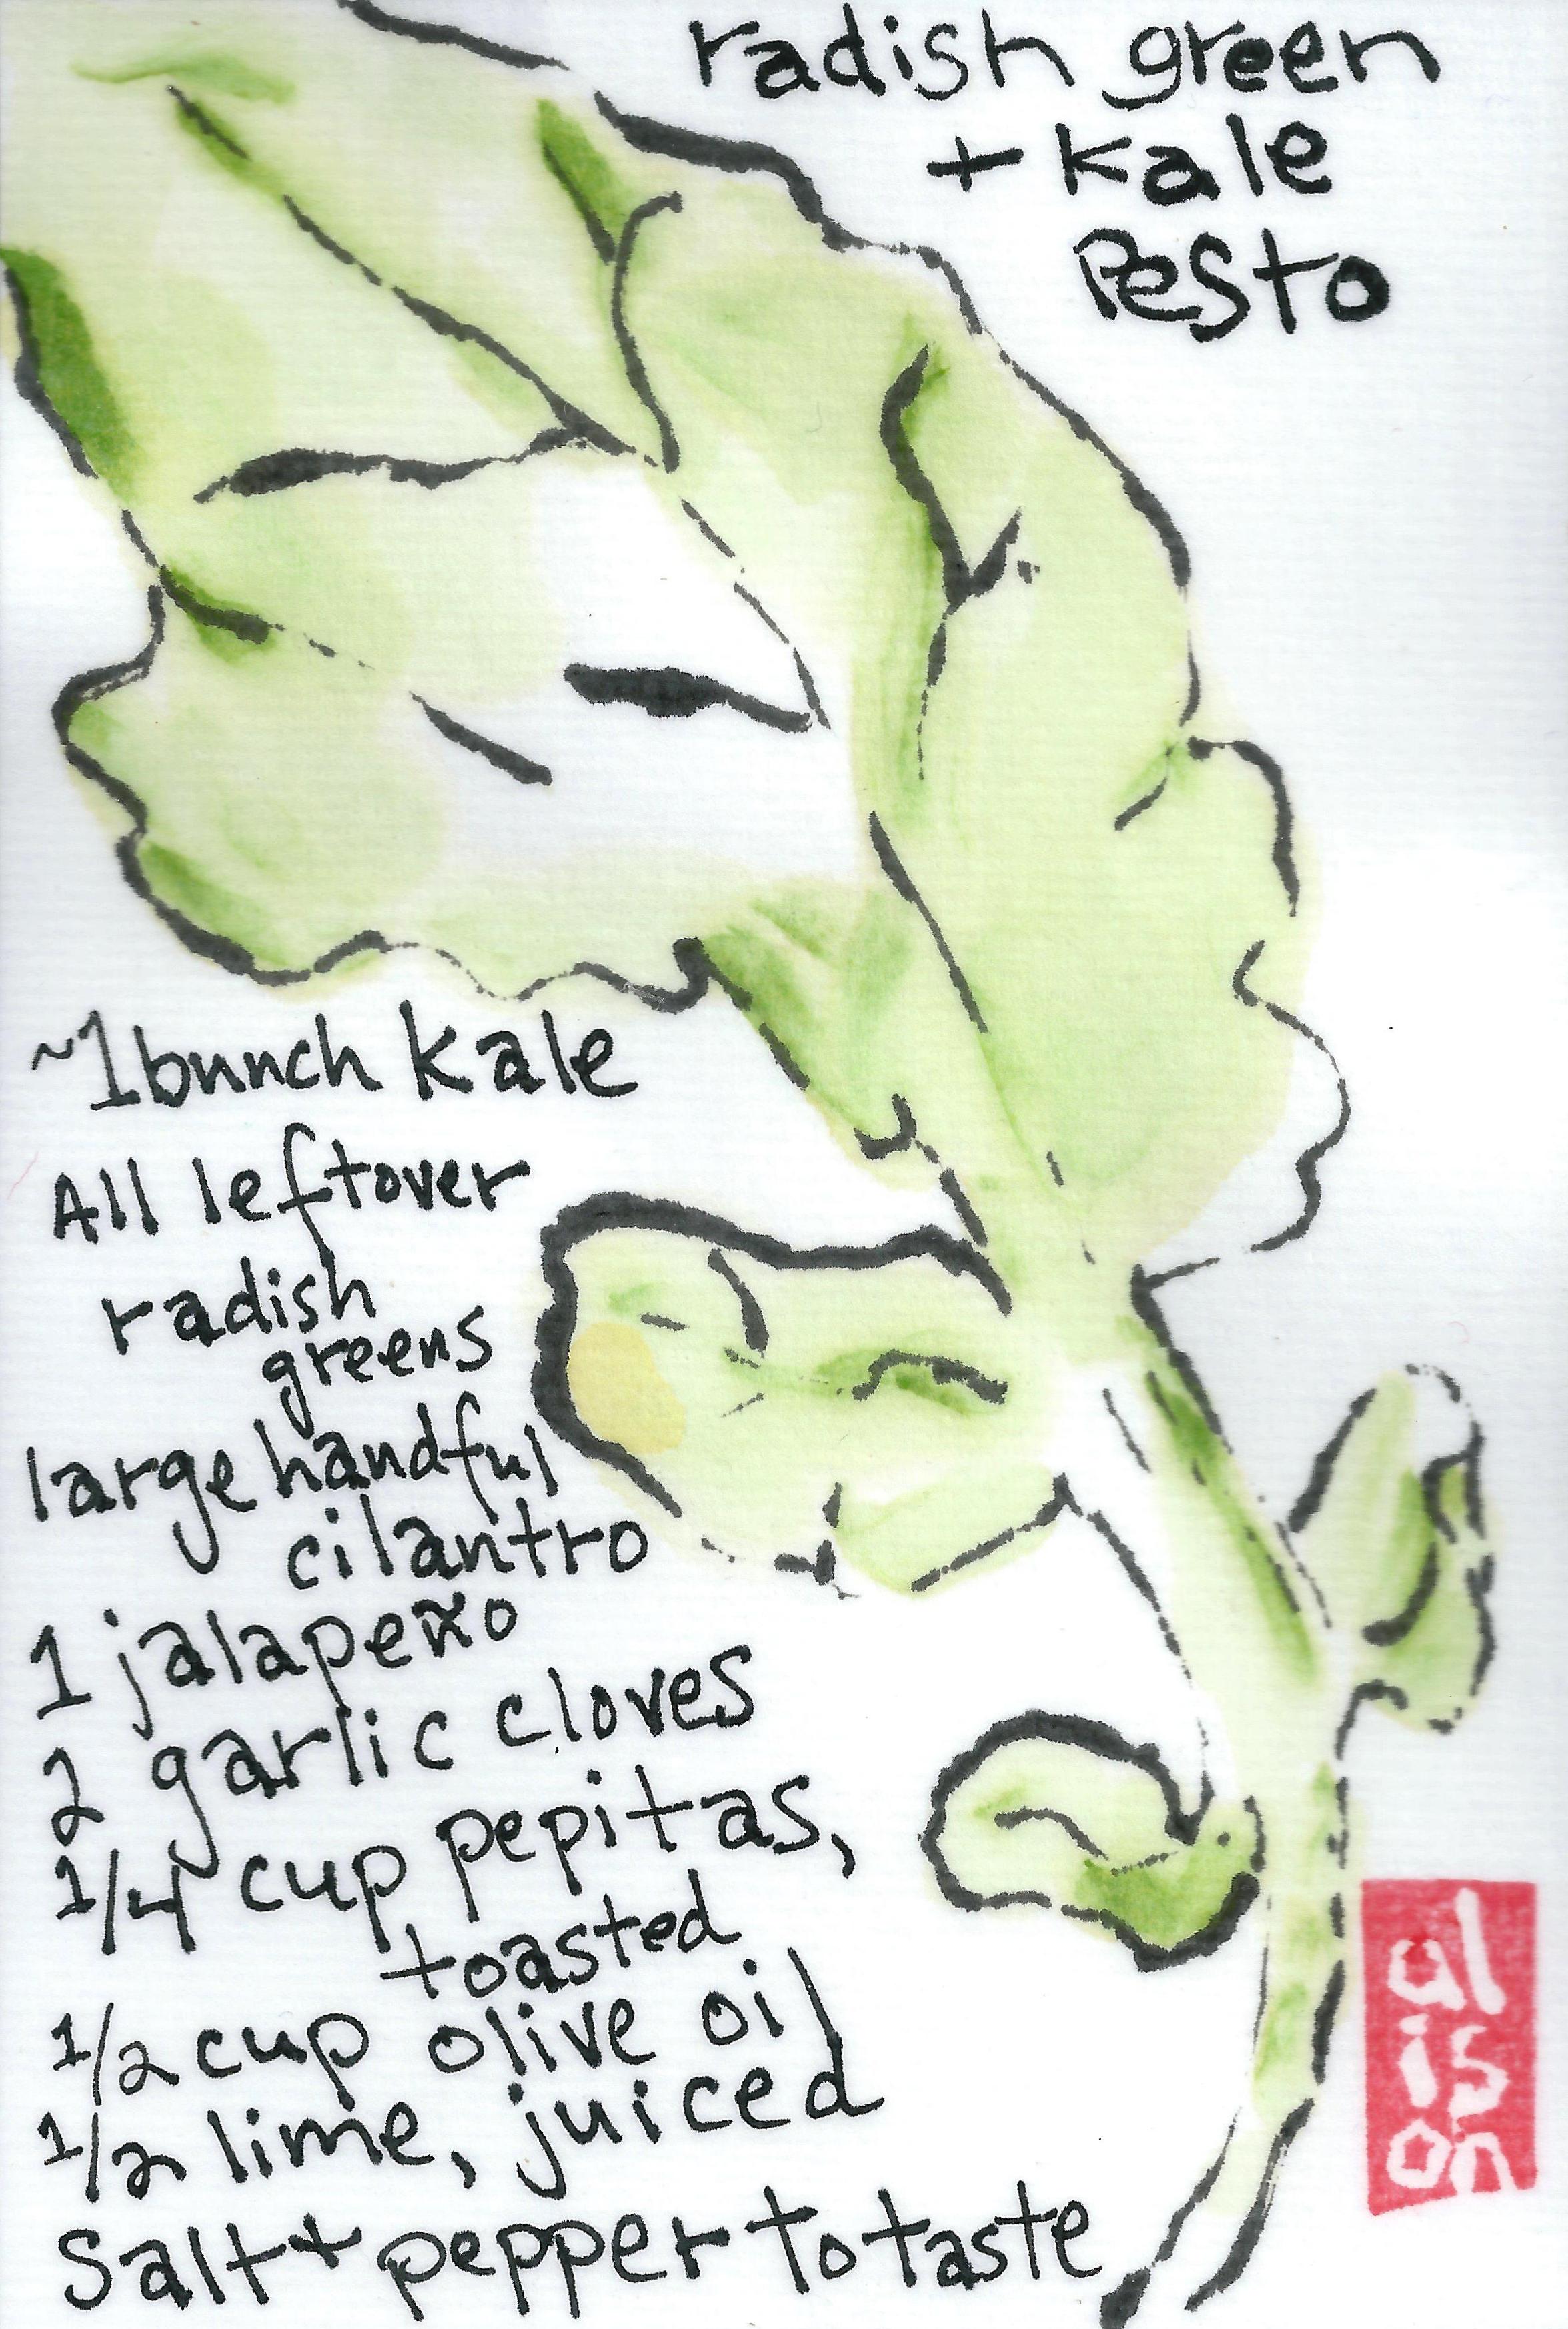 radish green
+ kale
Pesto
~1 bunch kale
All leftover
radish
greens
large handful
cilantro
1 jalapeño
2 garlic cloves
1/4 cup pepitas,
toasted
1/2 cup olive oil
1/2 lime, juiced
Salt + pepper to taste
al
is
on